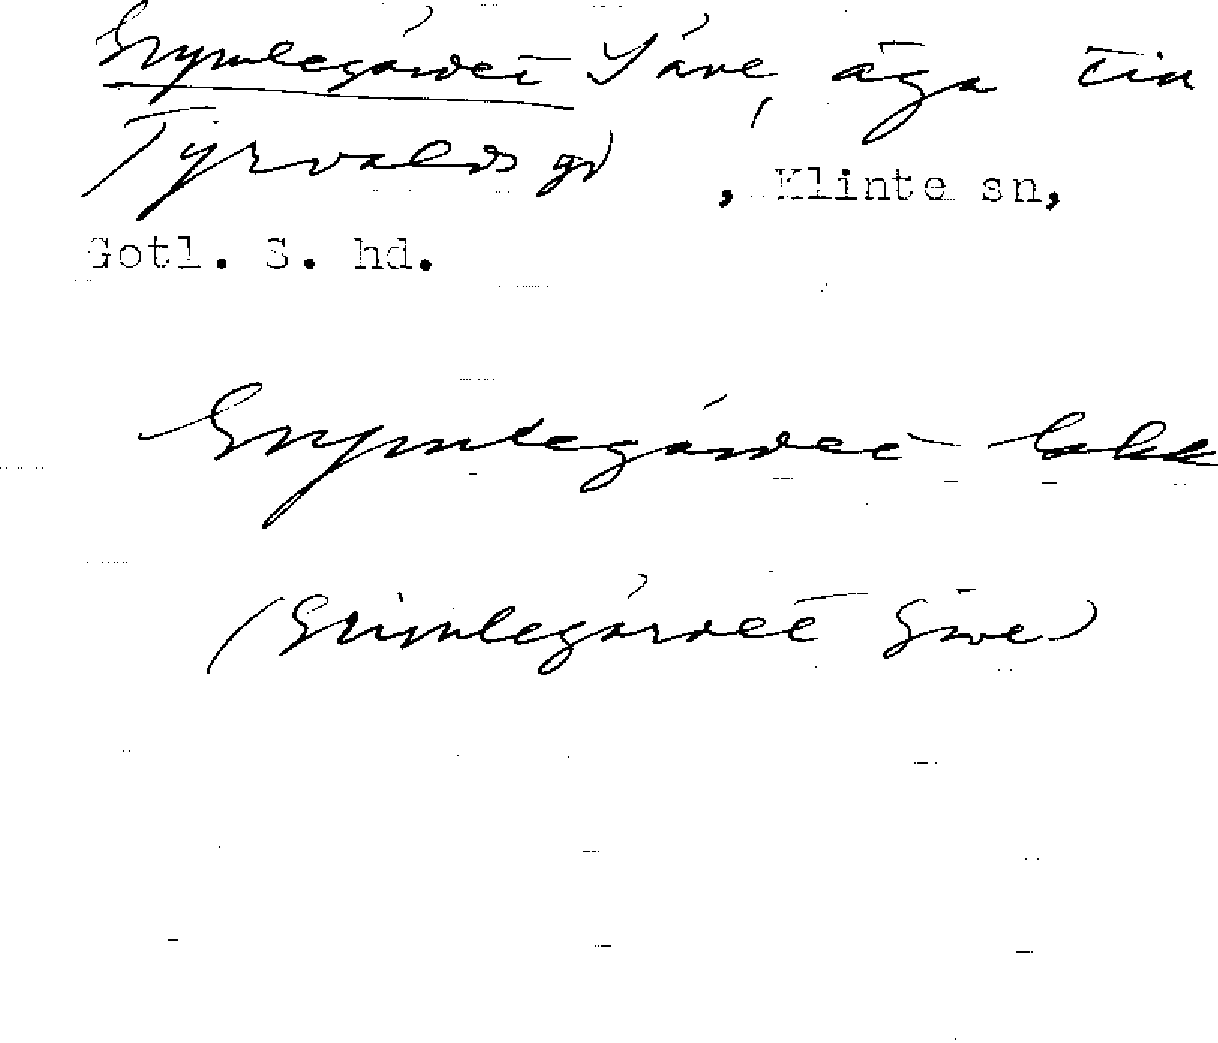 Grymlegårdet Säve, äga till
Tyrvalds gd, Klinte sn,
Gotl. S. hd.
Grymlegårdet
(Grimlegårdet Säve)